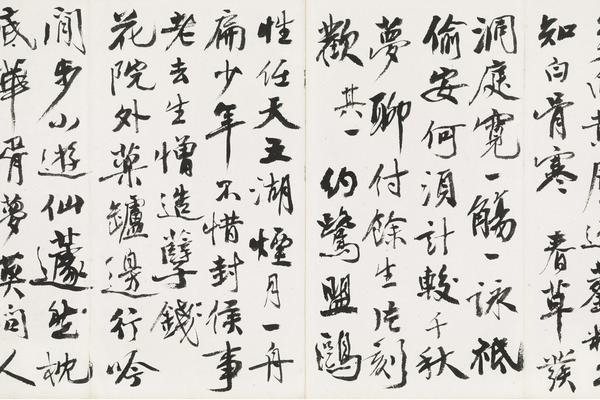 知白骨寒 春草發
洞庭寬一觴一詠祗
偷安何須計較千秋
夢聊付餘生片刻
歡 其一 約鷺盟鷗
性任天五湖煙月一舟
扁少年不惜封侯事
老去生憎造孽錢
花院外藥鑪邊行吟
閒步小遊仙蘧然枕
底華胥夢莫問人